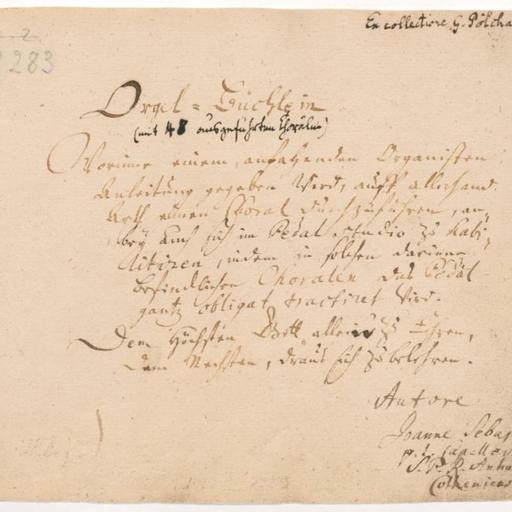 Ex collectione G. Pölcha
283
Orgel-Büchlein
(mit 48 ausgeführten Chorälen)
Worinne einem anfahenden Organisten
Anleitung gegeben wird, auff allerhand
Arth einen Choral durchzuführen, an-
bey auch sich im Pedal studio zu habi-
litiren, indem in solchen darinne
befindlichen Choralen das Pedal
gantz obligat tractiret wird.
Dem Höchsten Gott allein zu Ehren,
Dem Nechsten, draus sich zu belehren.
Autore
Joanne Sebas
p. t. Capellae
S. P. R. Anha
Cotheniens